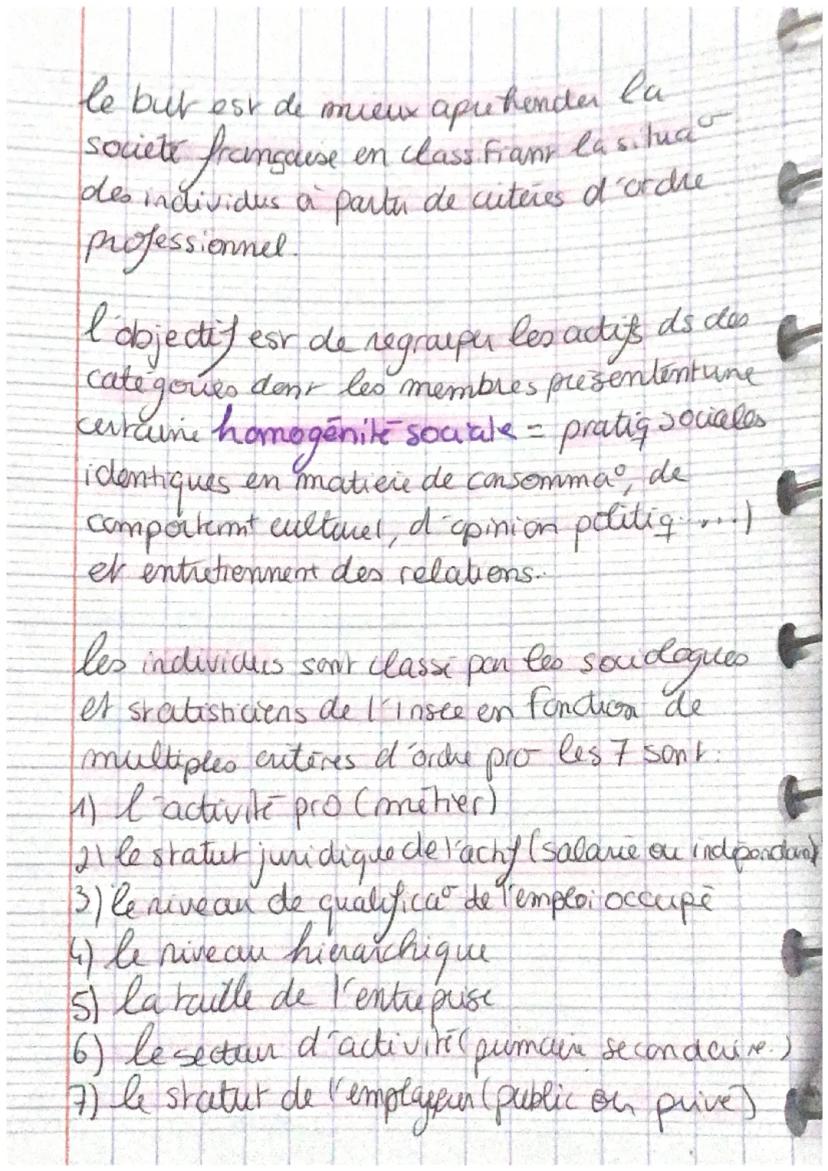 le but est de mieux aprehender la
societé française en classifiant la situa°
des individus à partir de critères d'ordre
professionnel.
l'objectif est de regrouper les actifs ds des
catégories dont les membres présentent une
certaine homogénité sociale = pratiq sociales
identiques en matière de consomma°, de
comportemt culturel, d'opinion politiq ...)
et entretiennent des relations.
les individus sont classé par les sociologues
et statisticiens de l'insee en fonction de
multiples critères d'ordre pro les 7 sont :
1) l'activité pro (métier)
2) le statut juridique de l'actif (salarié ou indépendant)
3) le niveau de qualifica° de l'emploi occupé
4) le niveau hiérarchique
5) la taille de l'entreprise
6) le secteur d'activité (primaire secondaire..)
7) le statut de l'employeur (public ou privé)